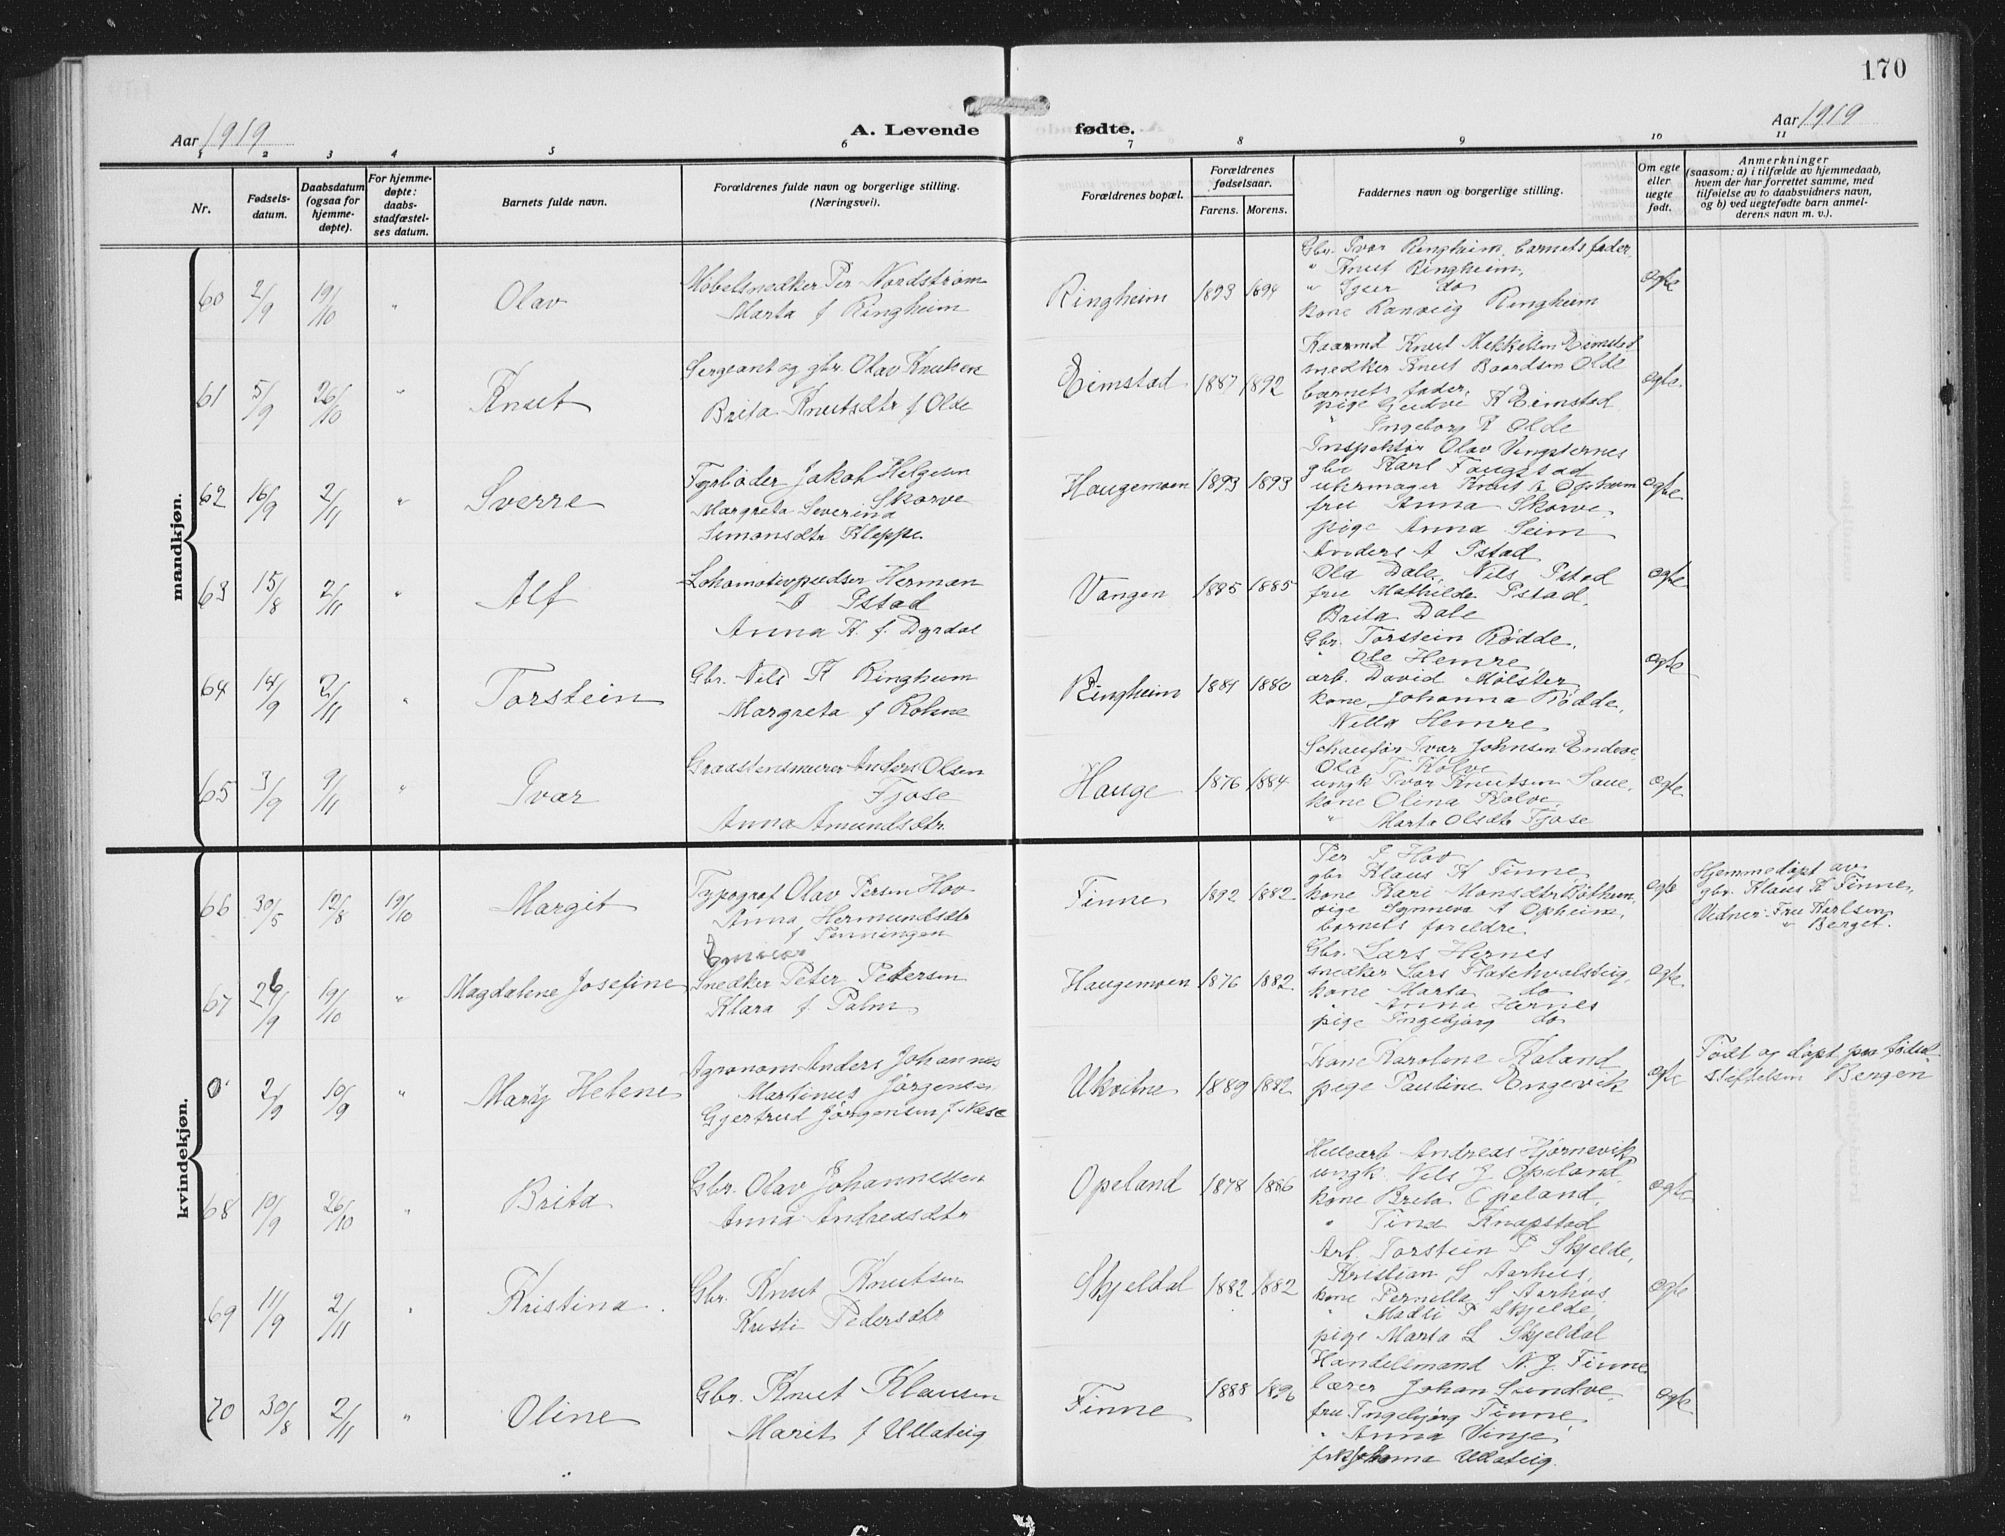 170
Aar 1919
A. Levende fødte.
Aar 1919
1 2 3 4 5 6 7 8 9 10 11
Nr.
Fødsels-
datum.
Daabsdatum
(ogsaa for
hjemme-
døpte).
For hjemme-
døpte:
daabs-
stadfæstel-
ses datum.
Barnets fulde navn.
Forældrenes fulde navn og borgerlige stilling.
(Næringsvei).
Forældrenes bopæl.
Forældrenes
fødselsaar.
Farens. Morens.
Faddernes navn og borgerlige stilling.
Om egte
eller
uegte
født.
Anmerkninger
(saasom: a) i tilfælde av hjemmedaab,
hvem der har forrettet samme, med
tilføielse av to daabsvidners navn,
og b) ved uegtefødte barn anmel-
derens navn m. v.).
mandkjøn.
60 2/9 19/10 " Olav
Møbelsnedker Per Nordstrøm
Marta f Ringheim
Ringheim 1893 1894
Gbr. Ivar Ringheim, barnets fader,
" Knut Ringheim,
" do
kone Ranveig Ringheim
egte
61 5/9 26/10 " Knut
Sergeant og gbr. Olav Knutsen
Brita Knutsdtr f Olde
Eimstad 1887 1892
Kaarmd Knut Mikkelsen Eimstad
snedker Knut Baardsen Olde
barnets fader,
pige Gudve K Eimstad
" Ingeborg K Olde
egte
62 16/9 2/11 " Sverre
Fyrbøder Jakob Helgesen
Skorve
Margreta Severina
Simonsdtr Kleppe.
Haugemoen 1893 1893
Inspektør Olav Vingsternes
gbr Karl Faugstad
uhrmager Knut K Opheim
fru Anna Skorve,
pige Anna Seim
egte
63 15/8 2/11 " Alf
Lokomotivpudser Herman
Istad
Anna K. f. Dyrdal
Vangen 1885 1885
Anders A Istad
Ola Dale, Nils Istad
fru Mathilde Istad,
Brita Dale
egte
64 14/9 2/11 " Torstein
Gbr. Nils K Ringheim
Margreta f Rokne
Ringheim 1881 1880
Gbr. Torstein Rødde,
" Ole Hemre,
arb. David Mølster
kone Johanna Rødde,
Nilla Hemre
egte
65 3/9 9/11 " Ivar
Graastensmurer Anders Olsen
Fjose
Anna Amundsdtr.
Hauge 1876 1884
Schaufør Ivar Johnsen Endeve
Ola T Kolve
ungk Ivar Knutsen Saue,
kone Olina Kolve,
" Marta Olsdtr Fjose
egte
kvindekjøn.
66 30/5 12/8 19/10 Margit
Typograf Olav Persen Hov
Anna Hermundsdtr
f Fenningen
Finne 1892 1882
Per J Hov
gbr Klaus K Finne
kone Kari Monsdtr Bøthun,
pige Synneva A Opheim,
barnets foreldre
egte
Hjemmedøpt av
gbr. Klaus K Finne,
Vidner: Fru Karlsen
" Berget.
67 26/9 19/10 " Magdalene Josefine
Snedker Peter Petersen
Klara f. Palm
Haugemoen 1876 1882
Gbr. Lars Hernes
snedker Lars
kone Marta do
" Anna Hernes
pige Ingebjørg do
egte
0 2/9 10/9 " Mary Helene
Agronom Anders Johannes
Martinus Jørgensen
Gjertrud Jørgensen f Næse
Ukvitne 1889 1882
Kone Karoline Kaland
pige Pauline Engevik
egte
Født og døpt paa fødsel-
stiftelsen Bergen
68 10/9 26/10 " Brita
Gbr. Olav Johannessen
Anna Andreasdtr
Opeland 1878 1886
Hellearb Andreas Hjørnevik
ungk. Nils J Opeland,
kone Brita Opeland,
" Tina Knapstad
egte
69 11/9 2/11 " Kristina.
Gbr. Knut Knutsen
Kristi Pedersdtr
Skjeldal 1882 1882
Arb. Torstein P Skjelde,
Kristian S Aarhus,
kone Pernilla S Aarhus
" Madli P Skjelde,
pige Marta L Skjeldal
egte
70 30/8 2/11 " Oline
Gbr. Knut Klausen
Marit f Ullateig
Finne 1888 1896
Handelsmand N. J. Finne
lærer Johan Sundve,
fru Ingebjørg Finne,
" Anna Vinje,
Johanna Ullateig.
egte